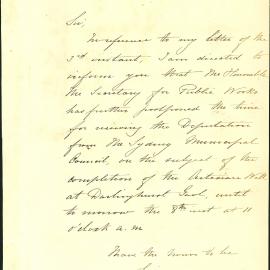 Sir,
In reference to my letter of the
3rd instant, I am directed to
inform you that the Honorable
the Secretary for Public Works
has further postponed the time
for receiving the Deputation
from the Sydney Municipal
Council, on the subject of the
completion of the Artesian Well
at Darlinghurst Gaol, until
to morrow the 8th inst at 11
o'clock a.m
I have the honor to be